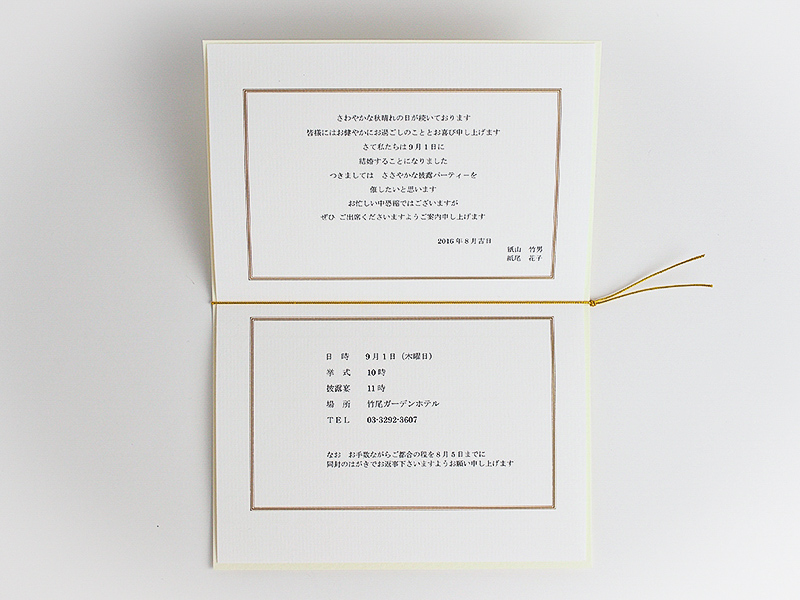 さわやかな秋晴れの日が続いております
皆様にはお健やかにお過ごしのこととお喜び申し上げます
さて私たちは9月1日に
結婚することになりました
つきましては　ささやかな披露パーティーを
催したいと思います
お忙しい中恐縮ではございますが
ぜひ ご出席くださいますようご案内申し上げます
2016年8月吉日
紙山　竹男
紙尾　花子
日　時　9月1日（木曜日）
挙　式　10時
披露宴　11時
場　所　竹尾ガーデンホテル
TEL　03-3292-3607
なお　お手数ながらご都合の程を8月5日までに
同封のはがきでお返事下さいますようお願い申し上げます